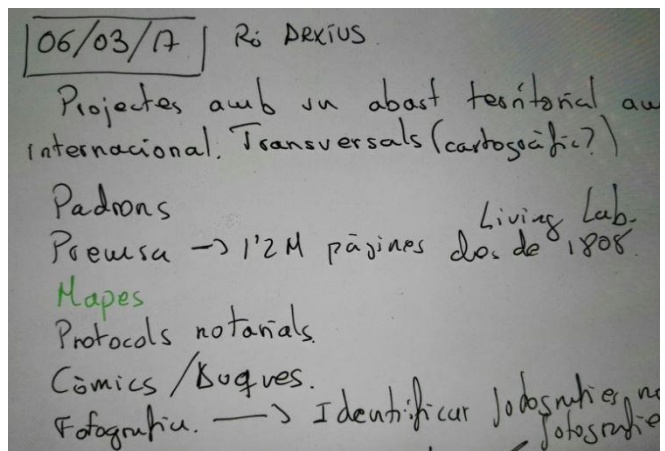 06/03/17 Rö Arxius
Projectes amb un abast territorial
internacional. Transversals (cartogràfic?)
Padrons
Living Lab.
Premsa -> 1'2M pàgines des de 1808.
Mapes
Protocols notarials.
Còmics / Auques.
Fotografia. -> Identificar fotografies
fotografie